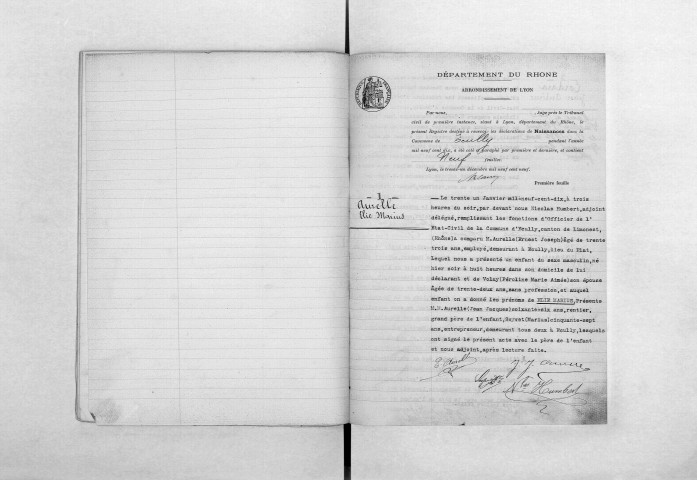 DÉPARTEMENT DU RHONE
ARRONDISSEMENT DE LYON
Par nous, Juge près le Tribunal
civil de première instance, séant à Lyon, département du Rhône, le
présent Registre destiné à recevoir les déclarations de Naissances dans la
Commune de Ecully pendant l'année
mil neuf cent dix, a été coté et paraphé par première et dernière, et contient
Neuf feuilles.
Lyon, le treize décembre mil neuf cent neuf.
Première feuille
1
Aurelle
Elie Marius
—Le trente un Janvier mil neuf-cent-dix, à trois
heures du soir, par devant nous Nicolas Humbert, adjoint
délégué, remplissant les fonctions d'Officier de l'
Etat-Civil de la Commune d'Ecully, canton de Limonest,
(Rhône) a comparu M. Aurelle (Ernest Joseph) âgé de trente
trois ans, employé, demeurant à Ecully, lieu du Plat,
Lequel nous a présenté un enfant du sexe masculin, né
hier soir à huit heures dans son domicile de lui
déclarant et de Volay (Péroline Marie Aimée) son épouse
âgée de trente-deux ans, sans profession, et auquel
enfant on a donné les prénoms de ELIE MARIUS, Présents
M.M. Aurelle (Jean Jacques) ans, rentier,
grand père de l'enfant, (Marius) cinquante-sept
ans, entrepreneur, demeurant tous deux à Ecully, lesquels
ont signé le présent acte avec le père de l'enfant
et nous adjoint, après lecture faite.
Humbert